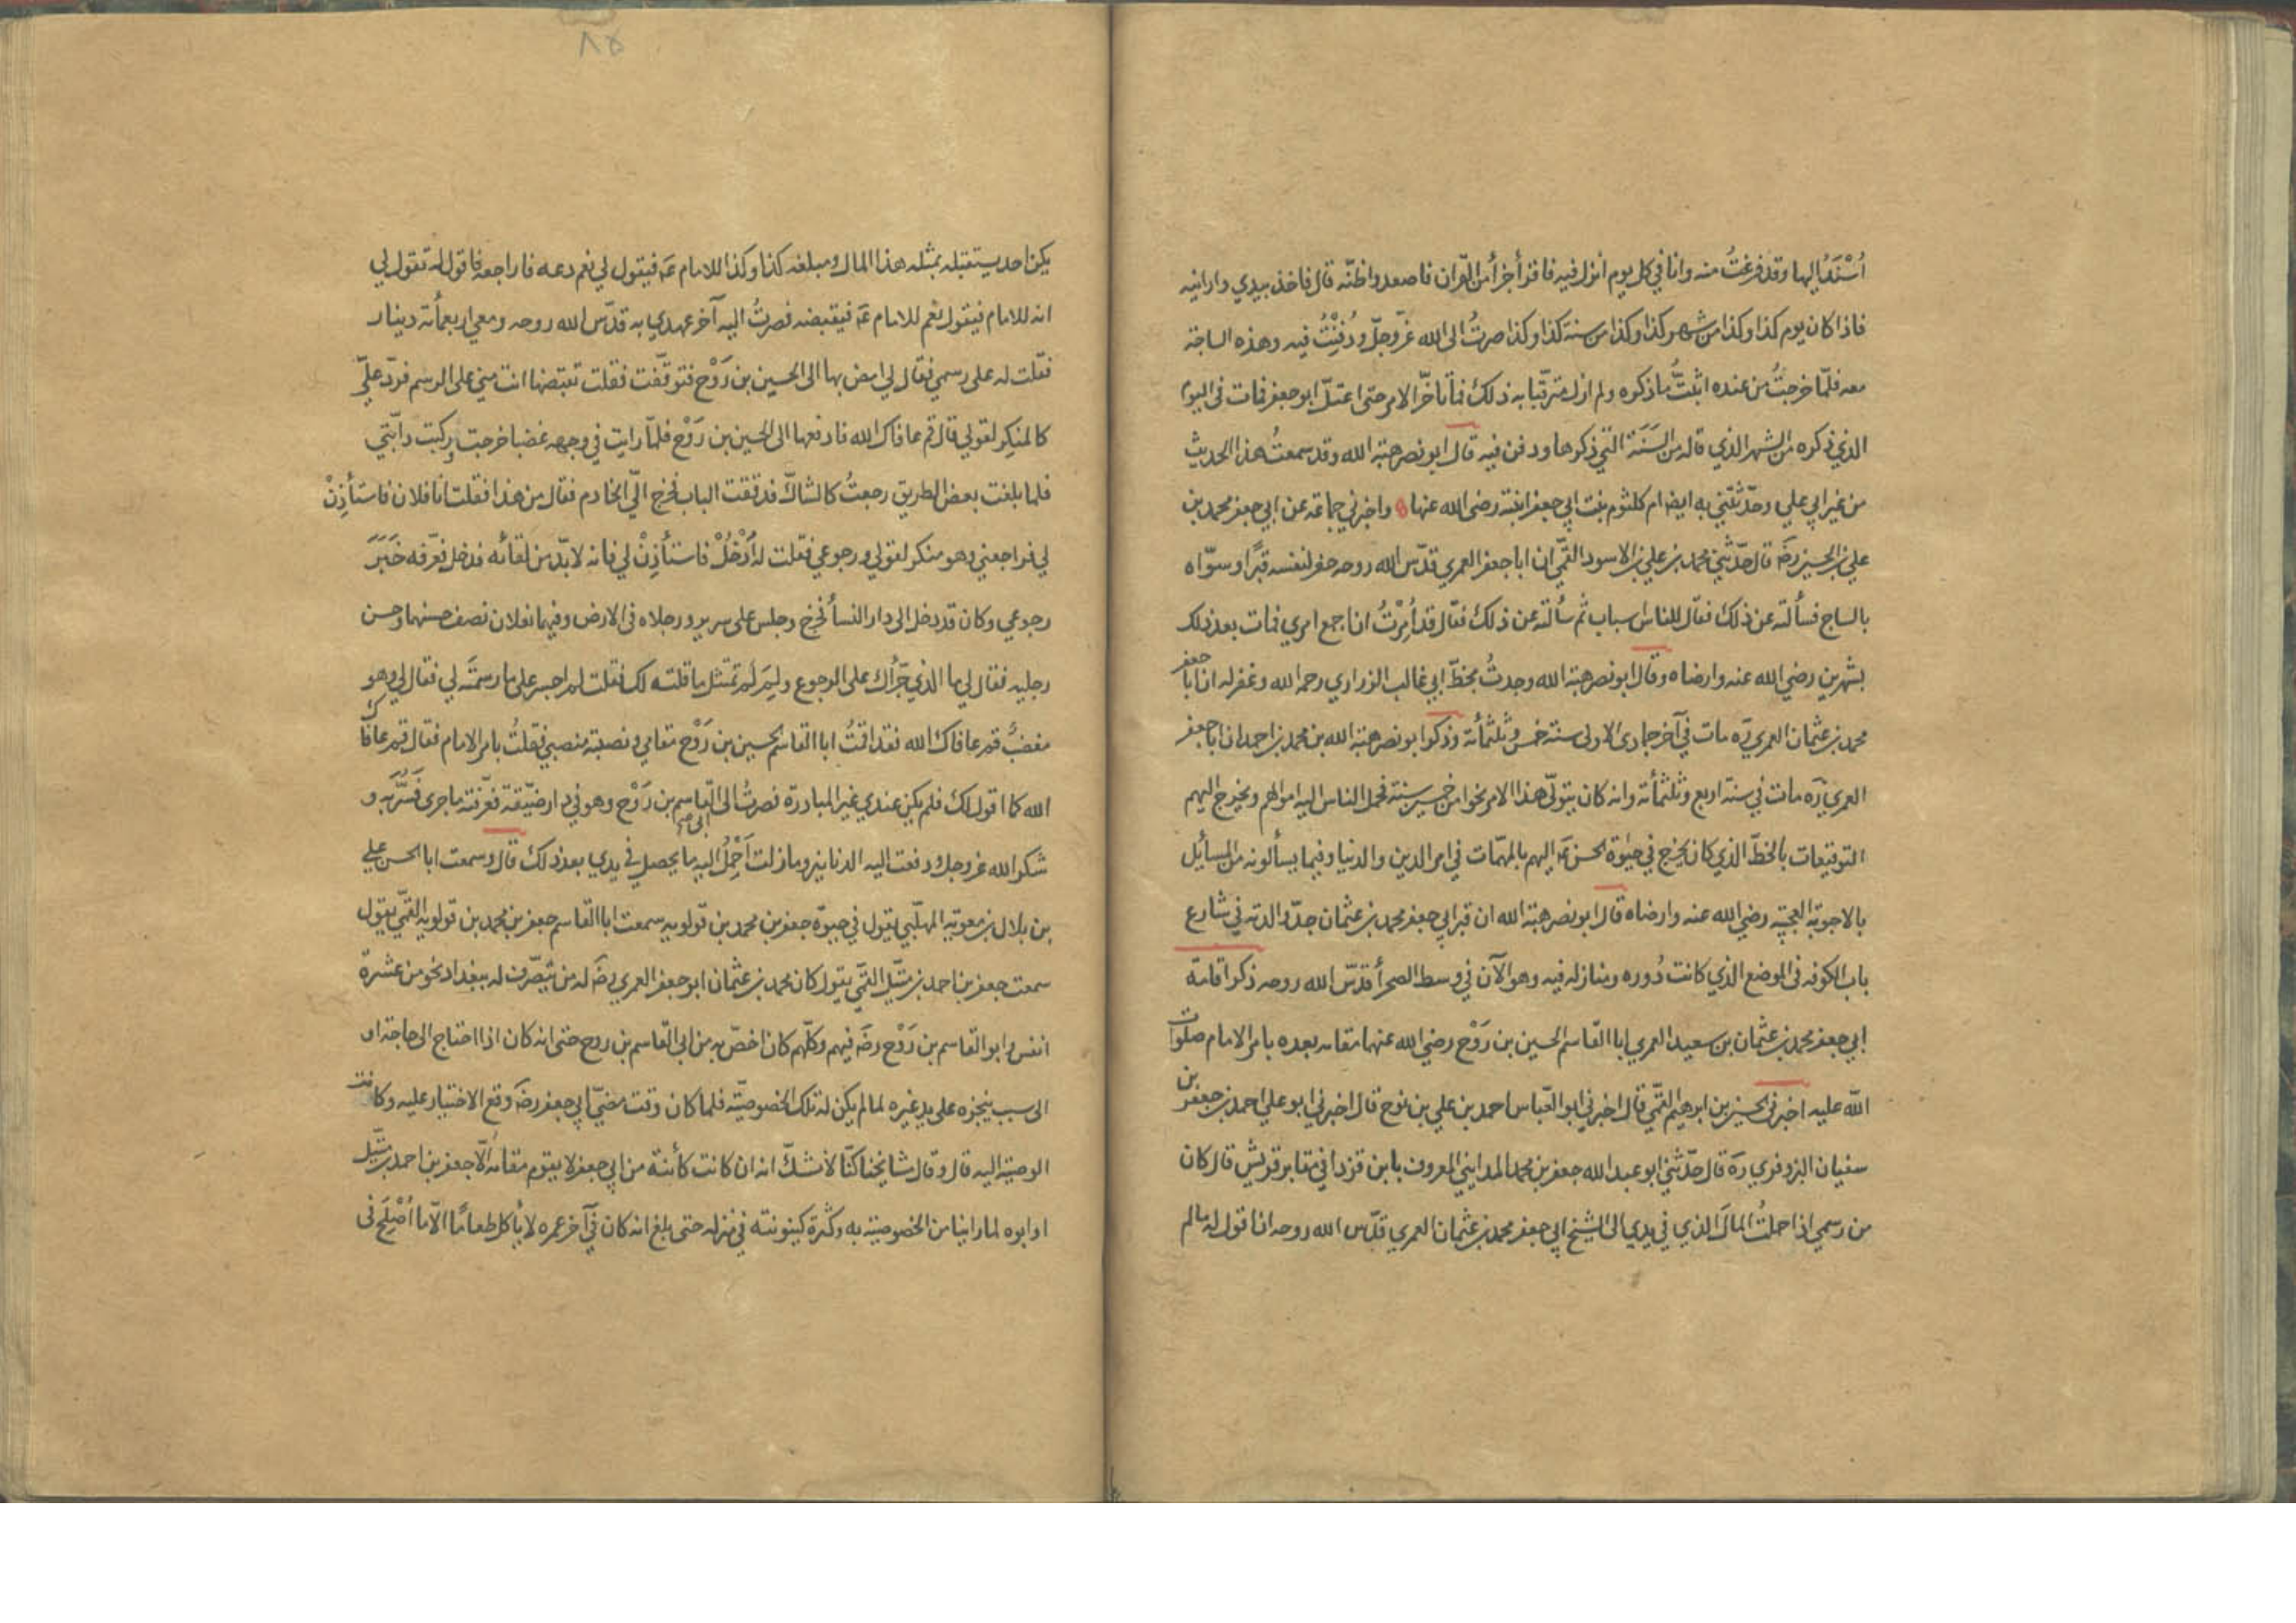 اُسْنَدُ اليها وقد فرغتُ منه وانا في كل يوم انزل فيه فاقرأ جزأ من القران فاصعد واظنّه قال فاخذ بيدي وارانيه
فاذا كان يوم كذا وكذا من شهر كذا وكذا من سنة كذا وكذا صرتُ الى الله عزّوجلّ ودُفِنْتُ فيه وهذه الساجة
معه فلمّا خرجتُ من عنده اثبتُّ ما ذكره ولم ازل مترقّبا به ذلك فما تاخّر الامر حتى اعتلّ ابو جعفر فمات في اليوم
الذي ذكره من الشهر الذي قاله من السَنَة التي ذكرها ودفن فيه قال ابو نصر هبة الله وقد سمعتُ هذا الحديث
من غير ابي علي وحدّثتني به ايضا ام كلثوم بنت ابي جعفر ابنته رضى الله عنها واخبرني جماعة عن ابي جعفر محمد بن
علي بن الحسين رضَه قال حدّثني محمد بن علي بن الاسود القمّي ان ابا جعفر العمري قدّس الله روحه حفر لنفسه قبرًا وسوّاه
بالساج فسألته عن ذلك فقال للناس اسباب ثم سألته عن ذلك فقال قد اُمِرْتُ ان اجمع امري فمات بعد ذلك
بشهرين رضي الله عنه وارضاه وقال ابو نصر هبة الله وجدتُ بخطّ ابي غالب الزراري رحمه الله وغفر له ان ابا جعفر
محمد بن عثمان العمري ره مات في آخر جمادى الاولى سنة خمس وثلثمأئة وذكر ابو نصر هبة الله بن محمد بن احمد ان ابا جعفر
العمري ره مات في سنة اربع وثلثمأئة وانه كان يتولّى هذا الامر نحوا من خمسين سنة فحمل الناس اليه اموالهم ويخرج اليهم
التوقيعات بالخطّ الذي كان يخرج في حيٰوة الحسن عَه اليهم بالمهمّات في امر الدين والدنيا وفيما يسألونه من المسائل
بالاجوبة العجيبة رضي الله عنه وارضاه قال ابو نصر هبة الله ان قبر ابي جعفر محمد بن عثمان جدّ والدته في شارع
باب الكوفه في الموضع الذي كانت دُوره ومنازله فيه وهو الآن في وسط الصحرأ قدّس الله روحه ذكر اقامة
ابي جعفر محمد بن عثمان بن سعيد العمري ابا القاسم الحسين بن رَوْح رضي الله عنهما مقامه بعده بامر الامام صلوات
الله عليه اخبرني الحسين بن ابرهيم القمّي قال اخبرني ابو العبّاس احمد بن علي بن نوح قال اخبرني ابو علي احمد بن جعفر بن
سفيان البزوفري ره قال حدّثني ابو عبد الله جعفر بن محمد المدايني المعروف بابن قزدا في مقابر قريش قال كان
من رسمي اذا حملتُ المالَ الذي في يدي الى الشيخ ابي جعفر محمد بن عثمان العمري قدّس الله روحه ان اقول له ما لم
٨٥
يكن احد يستقبله بمثله هذا المال ومبلغه كذا وكذا للامام عَه فيقول لي نعم دعه فاراجعه فاقول له تقول لي
انه للامام فيقول نعم للامام عَه فيقبضه فصرتُ اليه آخر عهدي به قدّس الله روحه ومعي اربعمأئة دينار
فقلت له على رسمي فقال لي امض بها الى الحسين بن رَوْح فتوقّفت فقلت تقبضها انت مني على الرسم فردّ عليّ
كالمنكر لقولي قال قم عافاك الله فادفعها الى الحسين بن رَوْح فلمّا رايت في وجهه غضبا خرجت وركبت دابّتي
فلما بلغت بعض الطريق رجعتُ كالشاكّ فدققت الباب فخرج اليّ الخادم فقال من هذا فقلت انا فلان فاستأذِنْ
لي فراجعني وهو منكر لقولي ورجوعي فقلت له اُدْخُلْ فاستأذِنْ لي فانه لا بدّ من لقائه فدخل فعرّفه خَبَرَ
رجوعي وكان قد دخل الى دار النسأ فخرج وجلس على سرير ورجلاه في الارض وفيهما نعلان نصف حسنهما وحسن
رجليه فقال لي ما الذي جَرّأك على الرجوع ولِمَ لَمْ تمتثل ما قلته لك فقلت لم اجسر على ما رسمتَه لي فقال لي وهو
مغضبٌ قم عافاك الله فقد اقمتُ ابا القاسم الحسين بن رَوْح مقامي ونصبته منصبي فقلتُ بامر الامام فقال قم عافاك
الله كما اقول لك فلم يكن عندي غير المبادرة فصرتُ الى ابي القاسم بن رَوْح وهو في دار ضيّقة فعرّفته ما جرى فَسُرَّ به و
شكر الله عزوجل ودفعت اليه الدنانير وما زلت اَحْمِلُ اليه ما يحصل في يدي بعد ذلك قال وسمعت ابا الحسن علي
بن بلال بن معوية المهلّبي يقول في حيوة جعفر بن محمد بن قولويه سمعت ابا القاسم جعفر بن محمد بن قولويه القمّي يقول
سمعت جعفر بن احمد بن متّيل القمّي يقول كان محمد بن عثمان ابو جعفر العمري رضَه له من يتصرّف له ببغداد نحو من عشرة
انفس وابو القاسم بن رَوْح رضَه فيهم وكلّهم كان اخصّ به من ابي القاسم بن روح حتى انه كان اذا احتاج الى حاجة او
الى سبب ينجزه على يد غيره لما لم يكن له تلك الخصوصيّة فلما كان وقت مضيّ ابي جعفر رضَه وقع الاختيار عليه وكانت
الوصية اليه قال وقال مشايخنا كنّا لا نشكّ انه ان كانت كائنة من ابي جعفر لا يقوم مقامه الّا جعفر بن احمد بن متّيل
او ابوه لما راينا من الخصوصية به وكثرة كينونته في منزله حتى بلغ انه كان في آخر عمره لا يأكل طعامًا الّا ما اُصْلِحَ في